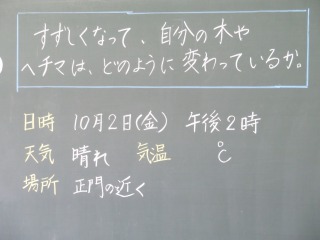 すずしくなって、自分の木や
ヘチマは、どのように変わっているか。
日時 10月2日(金) 午後2時
天気 晴れ 気温 ℃
場所 正門の近く